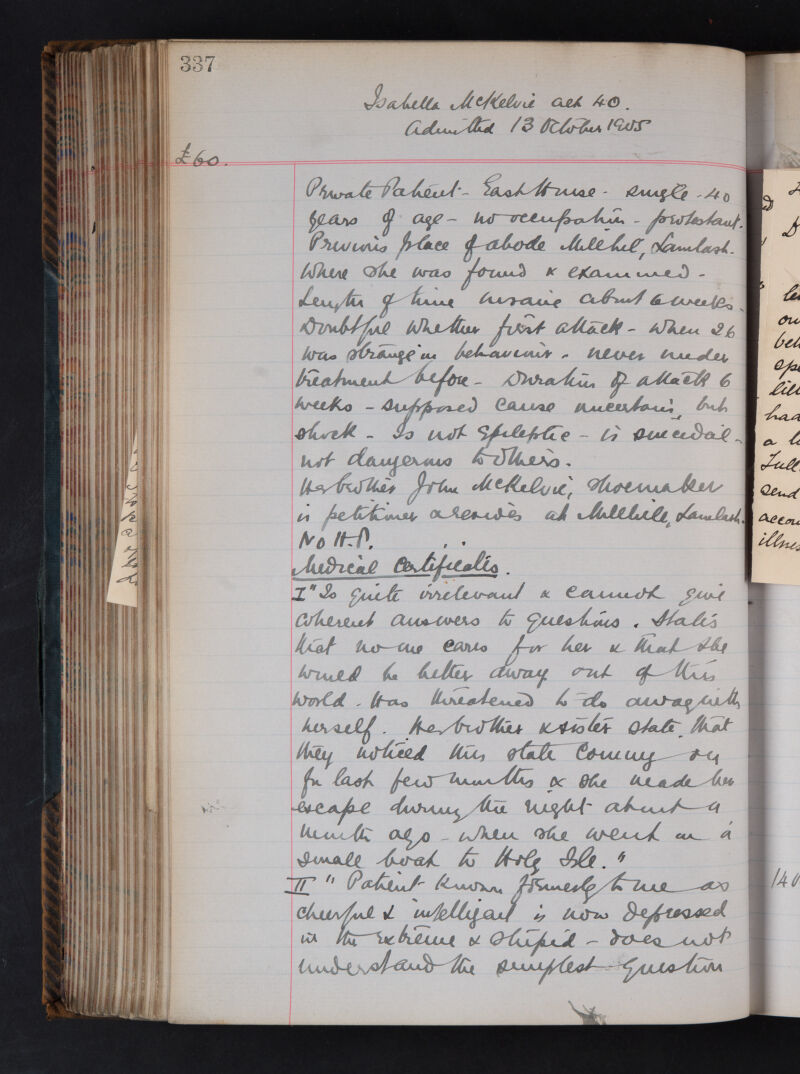 337
Isabella McKelvie aet 40.
Admitted 13 October 1905
£60.
Private Patient - East House - single - 40
years of age - no occupation - protestant.
Previous place of abode Millhill, Lamlash.
where she was found & examined -
Length of time insane about 6 weeks -
Doubtful whether first attack - when 26
was strange in behaviour - never under
treatment before - Duration of attack 6
weeks - supposed cause uncertain, but
shock - Is not Epileptic - is suicidal -
not dangerous to others.
Her brother John McKelvie, shoemaker
is petitioner & resides at Millhill, Lamlash.
No H.P.
Medical Certificates.
I "Is quite irrelevant & cannot give
coherent answers to questions. States
that no one cares for her & that she
would be better away out of this
world. Has threatened to do away with
herself. Her brother & sister state that
they noticed this state coming on
for last few months & she made her
escape during the night about a
month ago - when she went in a
small boat to Holy Isle."
II "Patient known formerly to me as
cheerful & intelligent is now depressed
in the extreme & stupid - does not
understand the simplest question
D
le
on
beh
spe
lill
had
a l
Full
send
accou
illnes
140